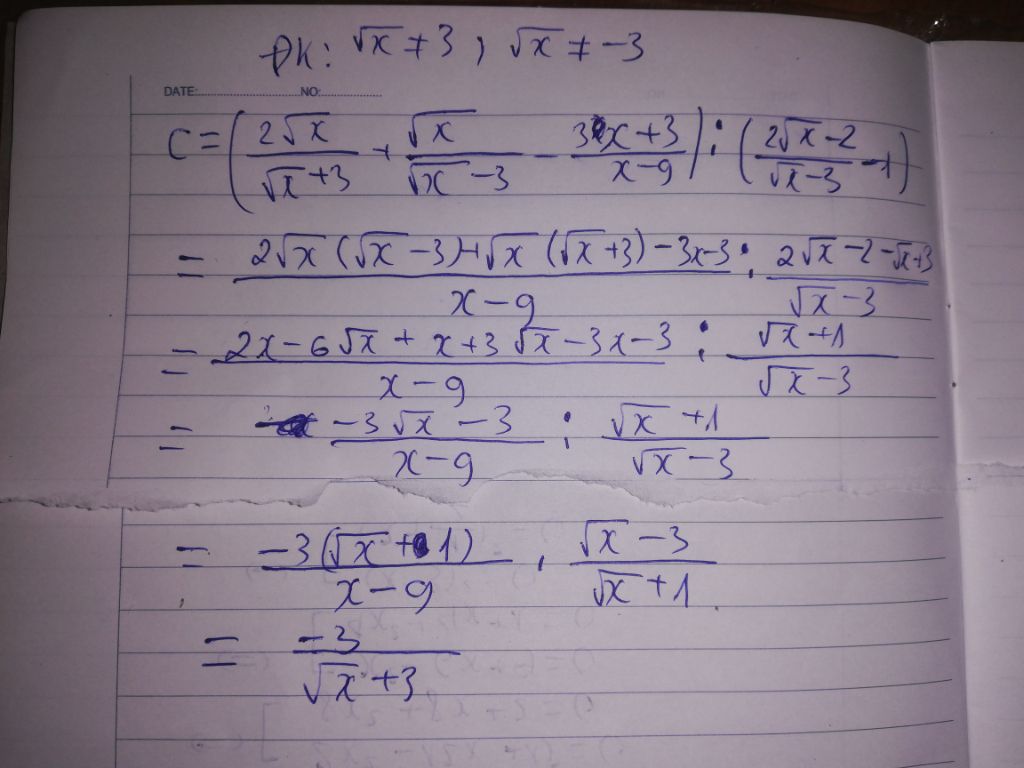 ĐK: √x ≠ 3 ; √x ≠ -3
DATE: NO:
C = (2√x/(√x+3) + √x/(√x-3) - (3x+3)/(x-9)) : ((2√x-2)/(√x-3) - 1)
= (2√x(√x-3)+√x(√x+3)-3x-3)/(x-9) : (2√x-2-√x+3)/(√x-3)
= (2x-6√x+x+3√x-3x-3)/(x-9) : (√x+1)/(√x-3)
= (-3√x-3)/(x-9) : (√x+1)/(√x-3)
= (-3(√x+1))/(x-9) . (√x-3)/(√x+1)
= -3/(√x+3)